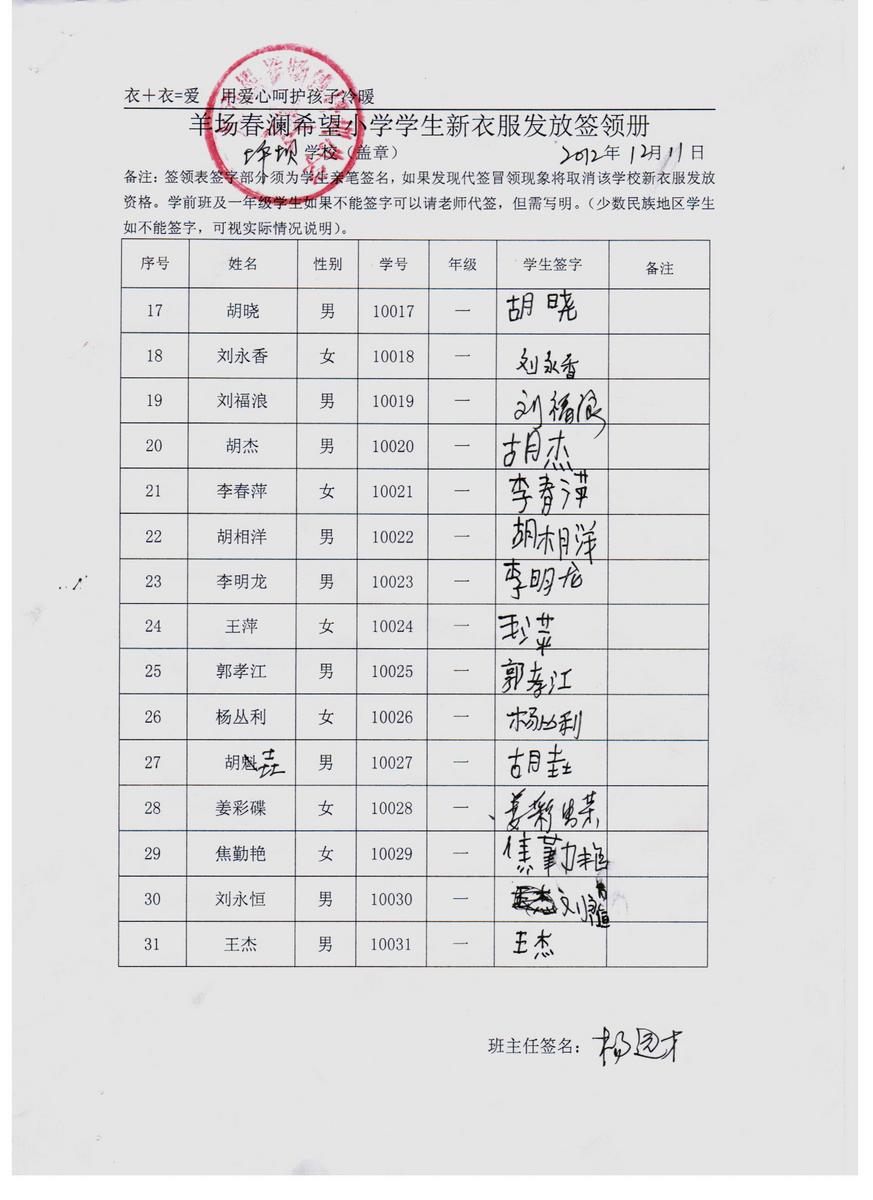 衣+衣=爱 用爱心呵护孩子冷暖
羊场春澜希望小学学生新衣服发放签领册
坪坝 学校（盖章） 2012年12月11日
备注：签领表签字部分须为学生亲笔签名，如果发现代签冒领现象将取消该学校新衣服发放
资格。学前班及一年级学生如果不能签字可以请老师代签，但需写明。（少数民族地区学生
如不能签字，可视实际情况说明）。
序号 姓名 性别 学号 年级 学生签字 备注
17 胡晓 男 10017 一 胡晓
18 刘永香 女 10018 一 刘永香
19 刘福浪 男 10019 一 刘福浪
20 胡杰 男 10020 一 胡杰
21 李春萍 女 10021 一 李春萍
22 胡相洋 男 10022 一 胡相洋
23 李明龙 男 10023 一 李明龙
24 王萍 女 10024 一 王萍
25 郭孝江 男 10025 一 郭孝江
26 杨丛利 女 10026 一 杨丛利
27 胡魁 垚 男 10027 一 胡垚
28 姜彩碟 女 10028 一 姜彩
29 焦勤艳 女 10029 一 焦勤艳
30 刘永恒 男 10030 一 刘永恒
31 王杰 男 10031 一 王杰
班主任签名：杨